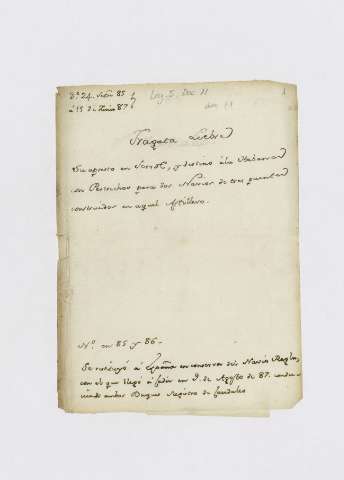 Dn. 24. Febo. 85
à 15 de Junio 87
Leg. 5. Doc 11
doc 11
1
Fragata Liebre
Su apresto en Ferrol, y destino à la Habana
con Pertrechos para dos Navios de tres puentes
construidos en aquel Astillero.
No. en 85 y 86.
Se retiró à España en conserva del Navio Regla,
con el que llegó à Cadiz en 9. de Agosto de 87. condu-
ciendo ambos Buques Registro de Caudales